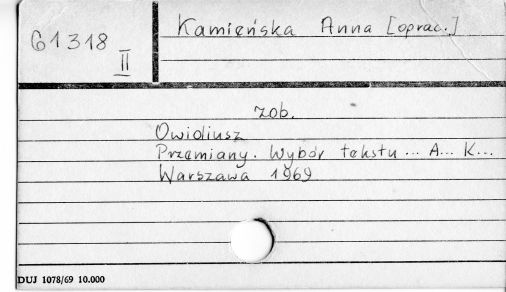 61318
II
Kamieńska Anna [oprac.]
zob.
Owidiusz
Przemiany. Wybór tekstu ... A... K...
Warszawa 1969
DUJ 1078/69 10.000